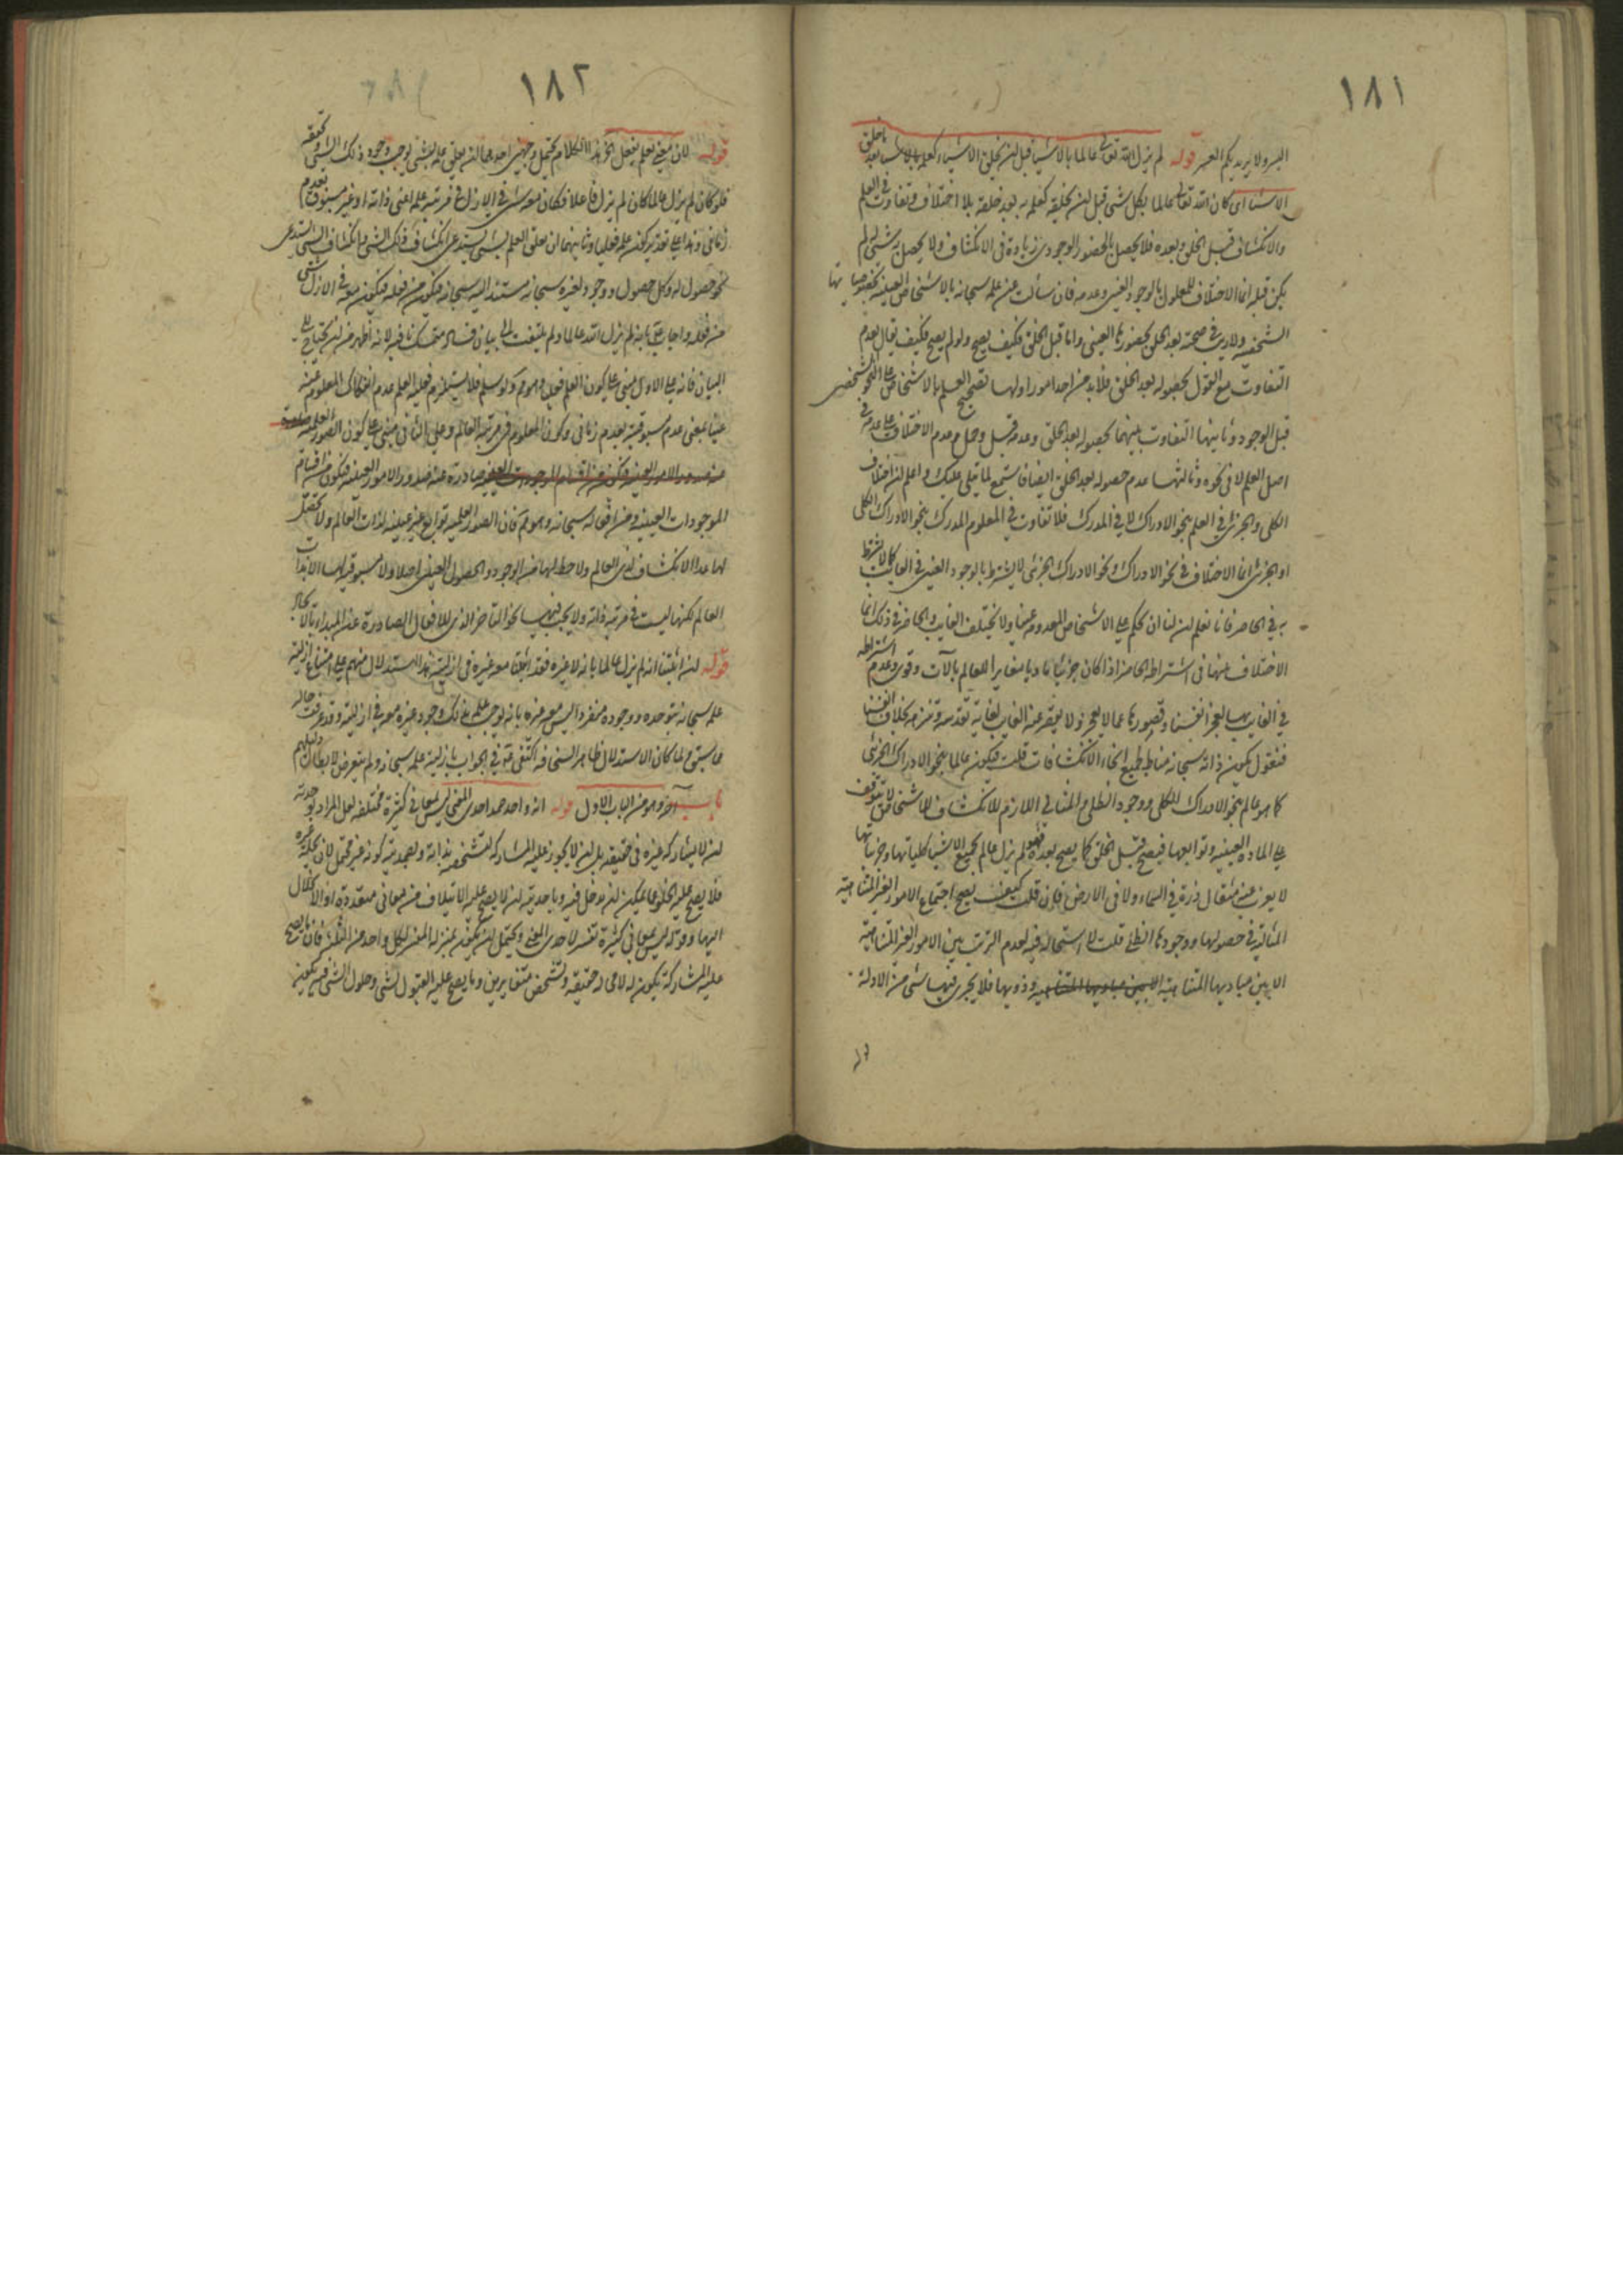 ١٨١
اليسر ولا يريد بكم العسر قوله لم يزل الله تعالى عالما بالاشياء قبل ان يخلق الاشياء كعلمه بالاشياء بعد ما خلق
الاشياء اى كان الله تعالى عالما بكل شئ قبل ان يخلقه كعلمه به بعد خلقه بلا اختلاف وتفاوت فى العلم
والانكشاف قبل الخلق وبعده فلا يحصل بالحضور الوجودى زيادة فى الانكشاف ولا يحصل به شئ لم
يكن قبله انما الاختلاف للمعلول بالوجود العينى وعدمه فان سألت عن علمه سبحانه بالاشخاص العينية بخصوصياتها
الشخصية ولا ريب فى صحته بعد الخلق بحضورها العينى واما قبل الخلق فكيف يصح ولو لم يصح فكيف يقال بعدم
التفاوت مع القول بحصوله بعد الخلق فلا بد من احد امور اولها تصحيح العلم بالاشخاص على النحو الشخصى
قبل الوجود وثانيها التفاوت بينهما بحصوله بعد الخلق وعدمه قبل وحمل عدم الاختلاف على عدمه فى
اصل العلم لا فى نحوه وثالثها عدم حصوله بعد الخلق ايضا فاستمع لما يتلى عليك واعلم ان اختلاف
الكلى والجزئى فى العلم بنحو الادراك لا فى المدرك فلا تفاوت فى المعلوم المدرك بنحو الادراك الكلى
او الجزئى انما الاختلاف فى نحو الادراك ونحو الادراك الجزئى لا يشترط بالوجود العينى فى الغائب كما لا يشترط
به فى الحاضر فانا نعلم ان لنا ان نحكم على الاشخاص المعدومة عينا ولا يختلف الغايب والحاضر فى ذلك انما
الاختلاف منها فى اشتراط الحاضر اذا كان جزئيا ماديا مغايرا للعالم بالآت وقوى وعدم اشتراطه
فى الغايب بها لعجز انفسنا وقصورها عما لا يعجز ولا يقصر عنه الغايب لغاية تقدسه وتنزهه بخلاف انفسنا
فنقول يكون ذاته سبحانه مناطا لجميع انحاء الانكشافات قلت فيكون عالما بنحو الادراك الجزئى
كما هو عالم بنحو الادراك الكلى ووجود الظلى والمثالى اللازم للانكشاف للاشخاص لا يتوقف
على المادة العينية وتوابعها فيصح قبل الخلق كما يصح بعده فهو لم يزل عالم بجميع الاشياء كلياتها وجزئياتها
لا يعزب عنه مثقال ذرة فى السماء ولا فى الارض فان قلت كيف يصح اجتماع الامور الغير المتناهية
المتألية فى حصولها ووجودها الظلى قلت لا استحالة فيه لعدم الترتب بين الامور الغير المتناهية
الا بين مباديها المتناهية وذويها فلا يجرى فيها شئ من الادلة
١٨٢
قوله لان معنى يعلم يفعل الخ هذا الكلام يحتمل وجهين احدهما ان تعلق علمه بشئ يوجب وجود ذلك الشئ وتحققه
فلو كان لم يزل عالما كان لم يزل فاعلا فكان معه شئ فى الازل فى مرتبة علمه اعنى ذاته او غير مسبوق بعدم
زمانى وهذا على تقدير كون علمه فعليا وثانيهما ان تعلق العلم بشئ يستدعى انكشاف ذلك الشئ وانكشاف الشئ يستدعى
نحو حصول له وكل حصول ووجود لغيره سبحانه مستند اليه سبحانه فيكون من فعله فيكون معه فى الازل شئ
من فعله واجاب عنه بانه لم يزل الله عالما ولم يلتفت الى بيان فساد متمسك نافيه لانه اظهر من ان يحتاج الى
البيان فانه على الاول مبنى على كون العلم فعليا وهو مم ولو سلم فلا يستلزم فعلية العلم عدم انفكاك المعلوم عنه
عينا بمعنى عدم مسبوقيته بعدم زمانى وكون المعلوم فى مرتبة العالم وعلى الثانى مبنى على كون الصور العلمية
صادرة عنه صدور الامور العينية فيكون من اقسام
الموجودات العينية ومن افعاله سبحانه وهو مم فان الصور العلمية توابع غير عينية لذات العالم ولا تحصل
لها عدا الانكشاف لدى العالم ولا حظ لها من الوجود والحصول العينى اصلا ولا مسبوقية لها الا بذات
العالم لكنها ليست فى مرتبة ذاته ولا يجب فيها نحو التاخر الذى للافعال الصادرة عن المبدأ بالايجاد
قوله ان اثبتنا انه لم يزل عالما بانه لا غيره فقد اثبتنا معه غيره فى ازليته هذا استدلال منهم على امتناع ازلية
علمه سبحانه بتوحده ووجوده منفردا ليس معه غيره بانه يوجب علمه بذلك وجود غيره معه فى ازليته وقد عرفت حاله
مما سبق ولما كان الاستدلال ظاهر السخافة اكتفى فى الجواب بازلية علمه سبحانه ولم يتعرض لابطال دليلهم
باب آخر وهو من الباب الاول قوله انه واحد صمد احدى المعنى ليس بمعانى كثيرة مختلفة لعل المراد بوحدته
ان لا يشاركه غيره فى حقيقته بل ان لا يجوز عليه المشاركة لتشخصه بذاته وبصمديته كونه غير محتمل لان يحله غيره
فلا يصح عليه الخلو عما يمكن ان يدخل فيه وباحديته ان لا يصح عليه الايتلاف من معانى متعددة او الانحلال
اليها وقوله ليس بمعانى كثيرة تفسير لاحدى المعنى ويحتمل ان يكون بمنزلة المفسر لكل واحد من الثلثة فان ما يصح
عليه المشاركة يكون له لا محالة حقيقة وتشخص متغايرين وما يصح عليه القبول لشئ وحلول الشئ فيه يكون